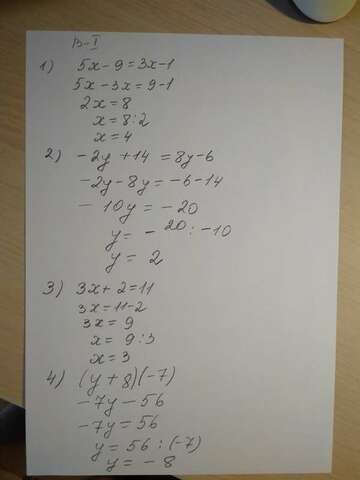 В-I
1) 5x-9=3x-1
5x-3x=9-1
2x=8
x=8:2
x=4
2) -2y+14=8y-6
-2y-8y=-6-14
-10y=-20
y=-20:-10
y=2
3) 3x+2=11
3x=11-2
3x=9
x=9:3
x=3
4) (y+8)(-7)
-7y-56
-7y=56
y=56:(-7)
y=-8